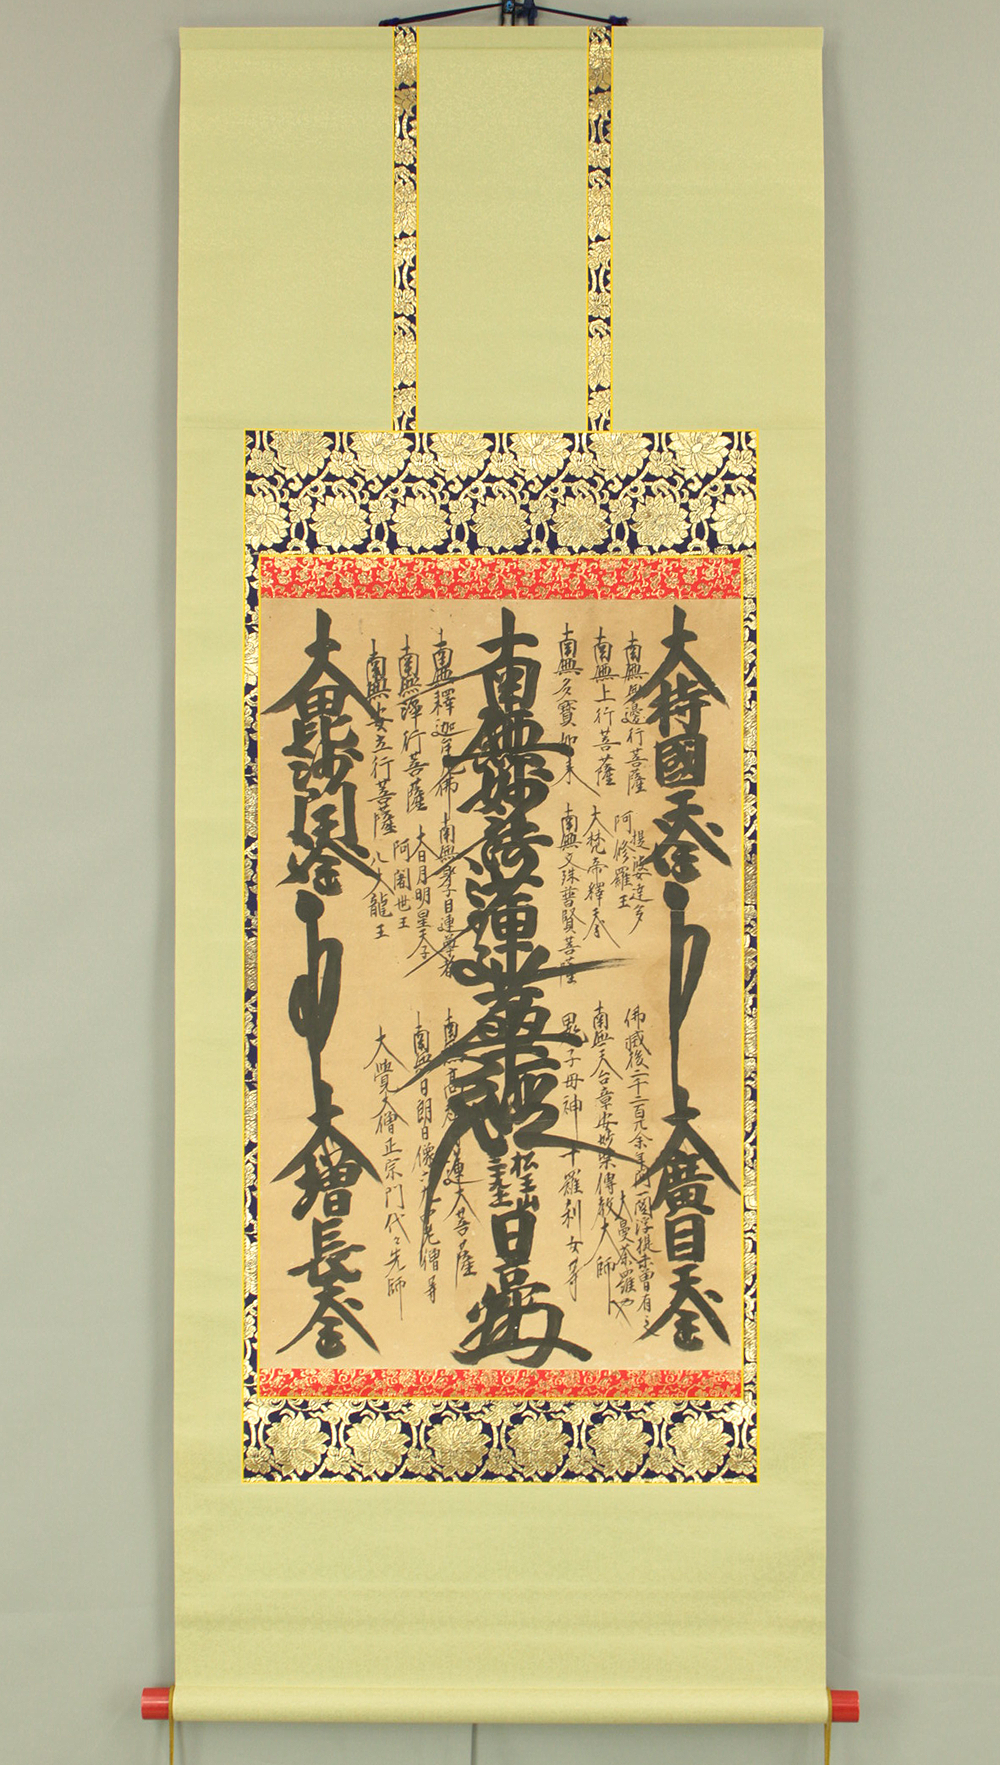 大持國天
大廣目天
南無無邊行菩薩
提婆達多
阿修羅王
佛滅後二千二百余年間一閻浮提未曾有之
大曼荼羅也
南無上行菩薩
大梵帝釋
南無天台章安妙樂傳教大師
南無多寶如来
南無文殊普賢菩薩
鬼子母神十羅刹女等
南無妙法蓮華経
日
南無釋迦牟尼佛
南無身子目連尊者
南無高祖日蓮大菩薩
南無淨行菩薩
大日月明星天子
南無日朗日像
老僧等
南無安立行菩薩
阿闍世王
八大龍王
大覺大僧正宗門代々先師
大毘沙門
大増長天